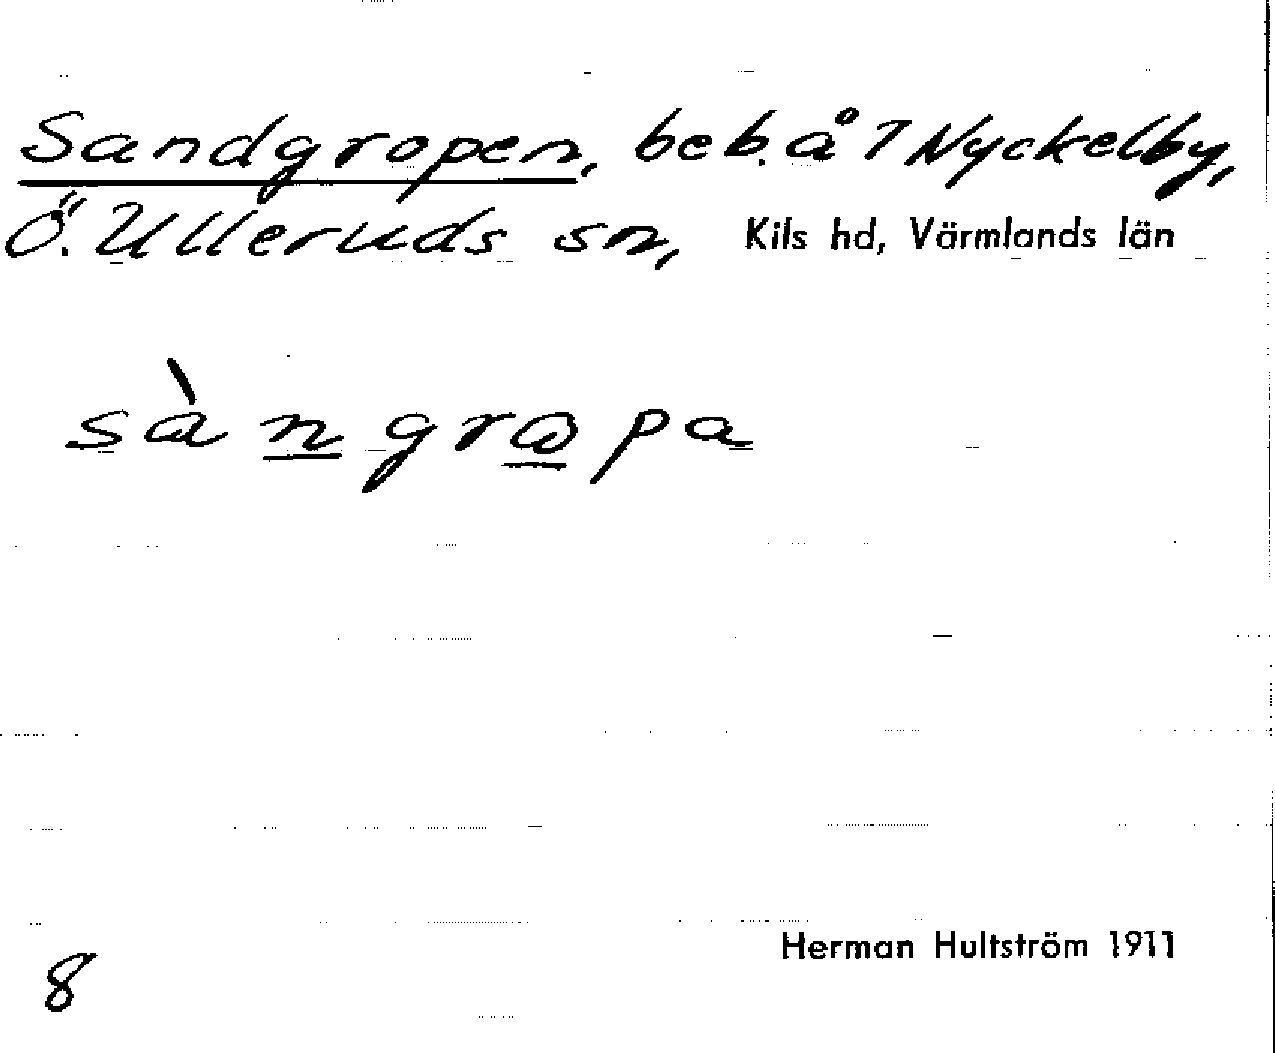 Sandgropen, beb. å 7 Nyckelby,
Ö. Ulleruds sn, Kils hd, Värmlands län
sàngropa
Herman Hultström 1911
8